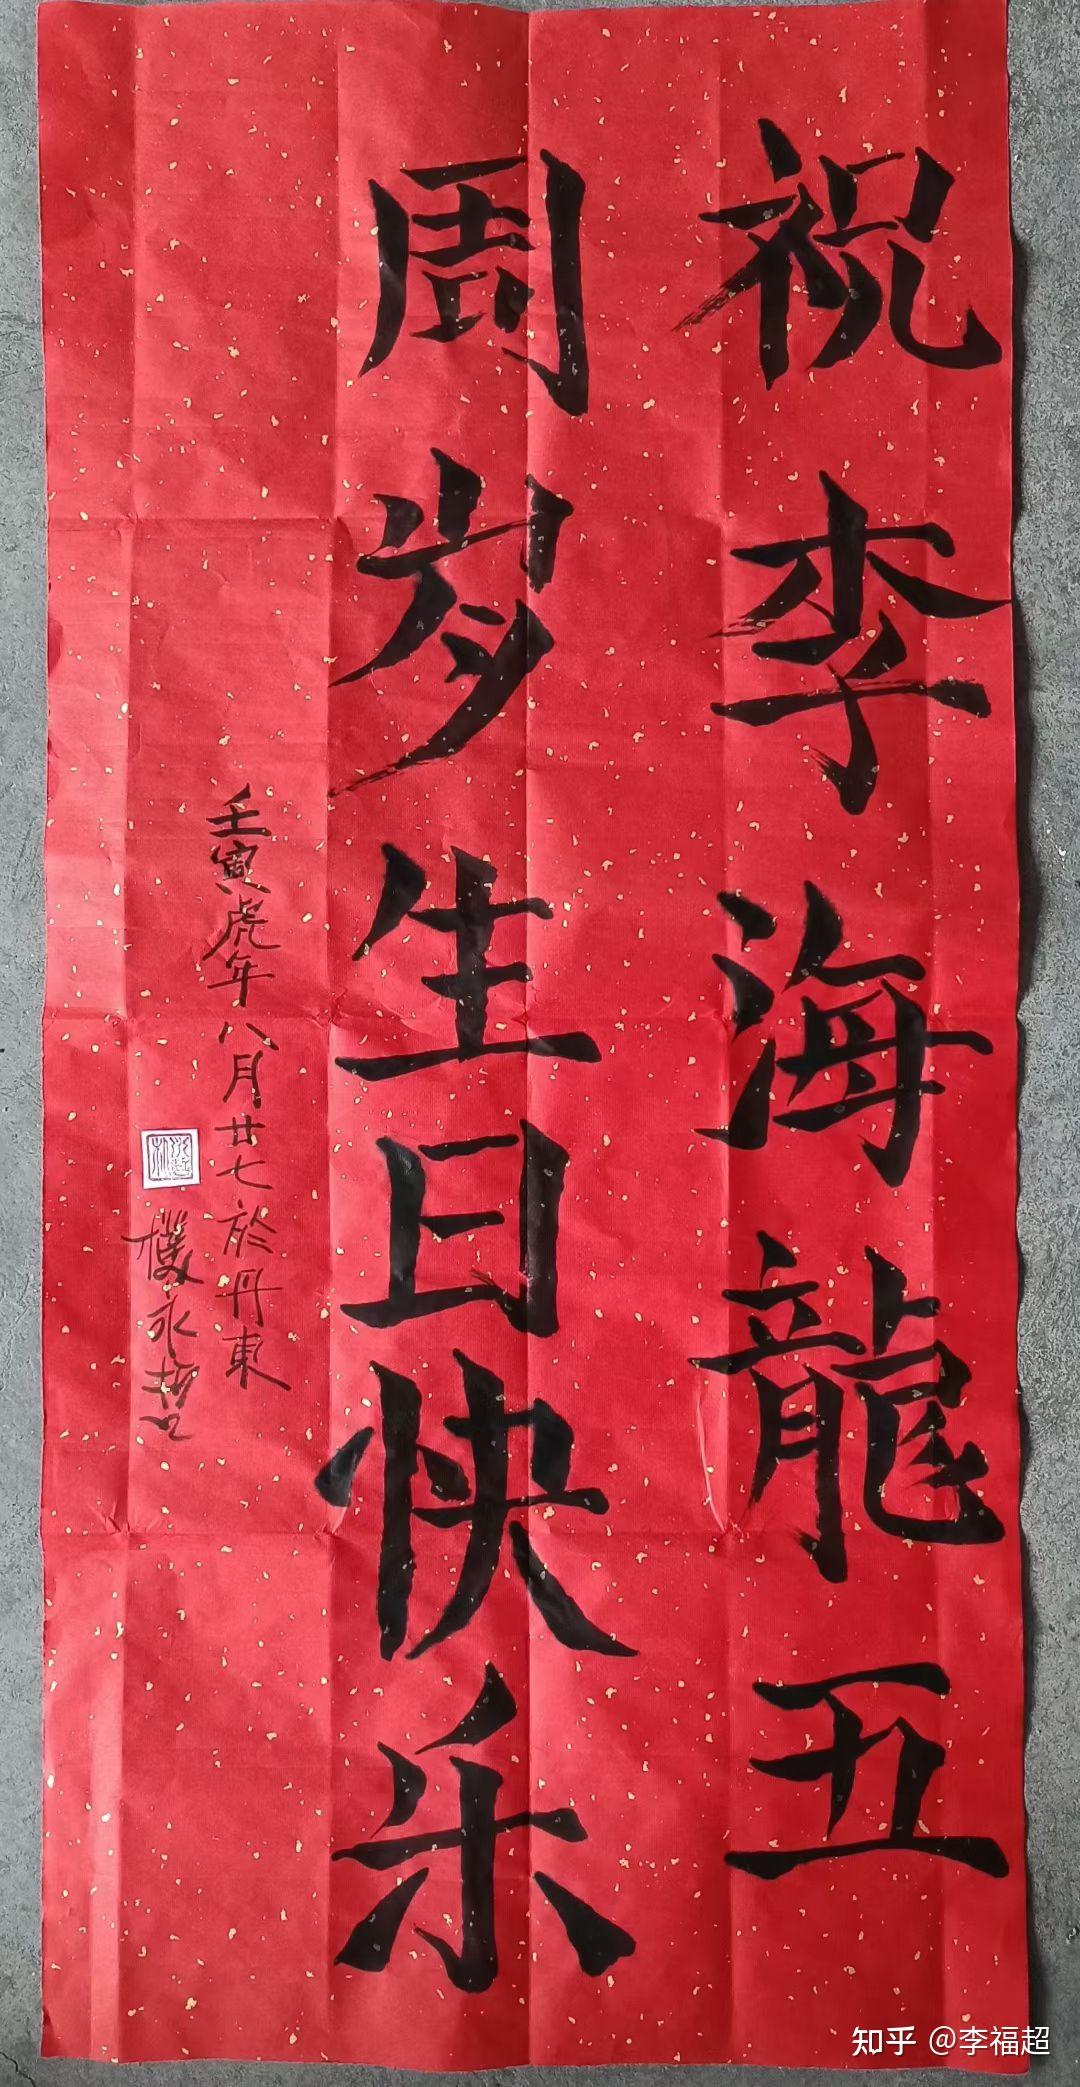 祝李海龍五
周岁生日快乐
壬寅虎年八月廿七於丹東
樸永哲
知乎 @李福超